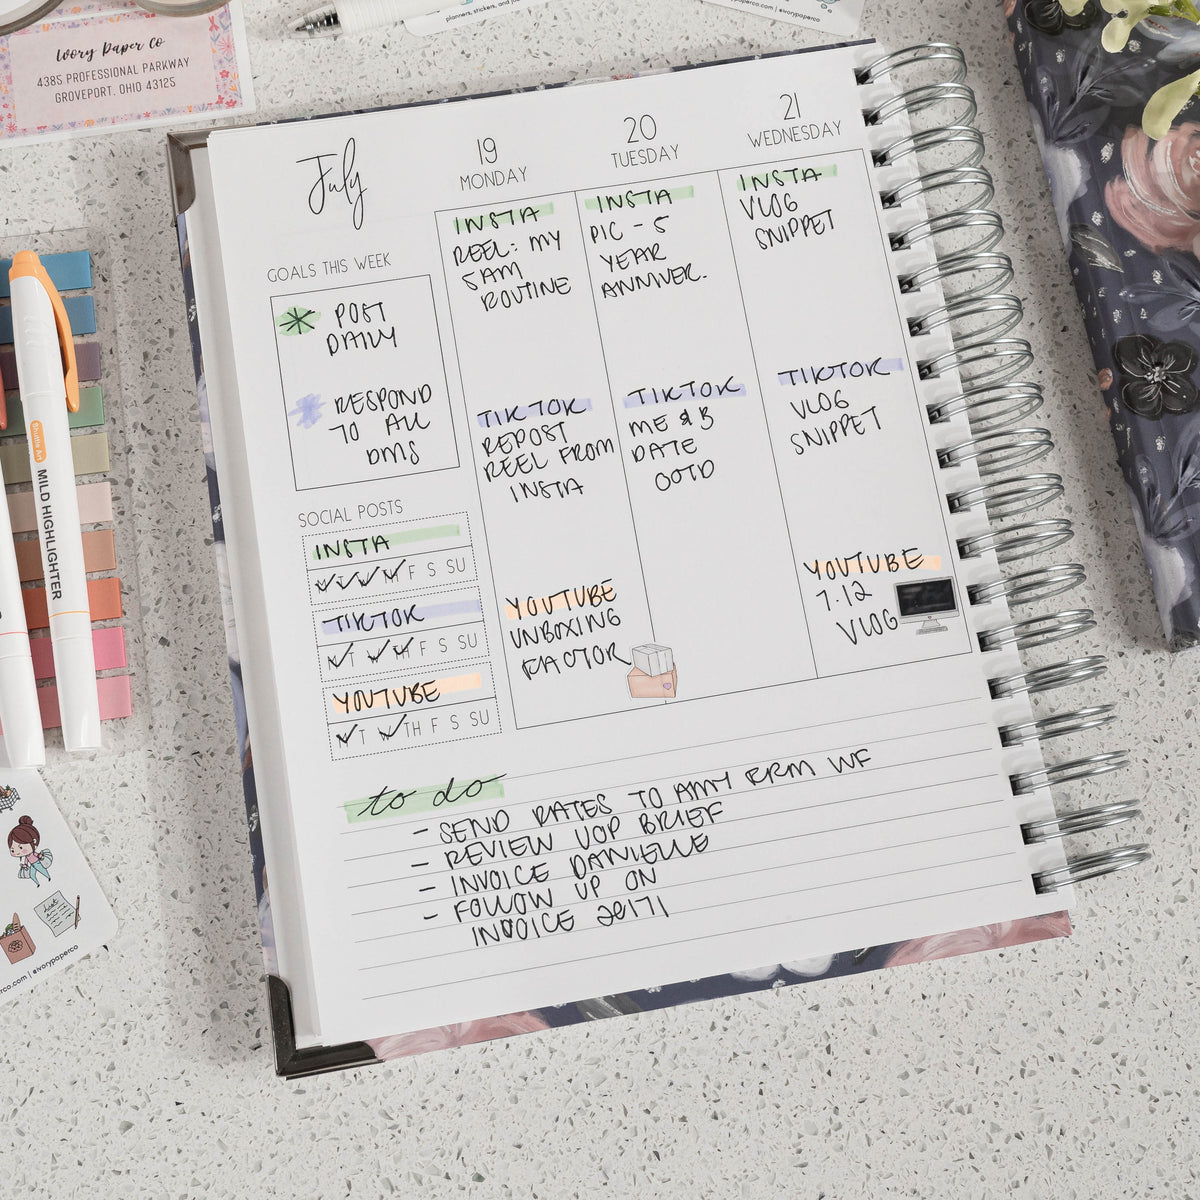 Ivory Paper Co
4385 PROFESSIONAL PARKWAY
GROVEPORT, OHIO 43125
planners, stickers, and
@ivorypaperco
July
19
MONDAY
20
TUESDAY
21
WEDNESDAY
GOALS THIS WEEK
POST
DAILY
RESPOND
TO ALL
DMS
SOCIAL POSTS
INSTA
M T W TH F S SU
TIKTOK
M T W TH F S SU
YOUTUBE
M T W TH F S SU
INSTA
REEL: MY
5AM
ROUTINE
TIKTOK
REPOST
REEL FROM
INSTA
YOUTUBE
UNBOXING
INSTA
PIC - 5
YEAR
ANNIVER.
TIKTOK
ME & B
DATE
OOTD
INSTA
VLOG
SNIPPET
TIKTOK
VLOG
SNIPPET
YOUTUBE
7.12
VLOG
to do
- SEND RATES TO AMY WF
- REVIEW UOP BRIEF
- INVOICE DANIELLE
- FOLLOW UP ON
INVOICE 20171
Shuttle Art
MILD HIGHLIGHTER
co.com | @ivorypaperco